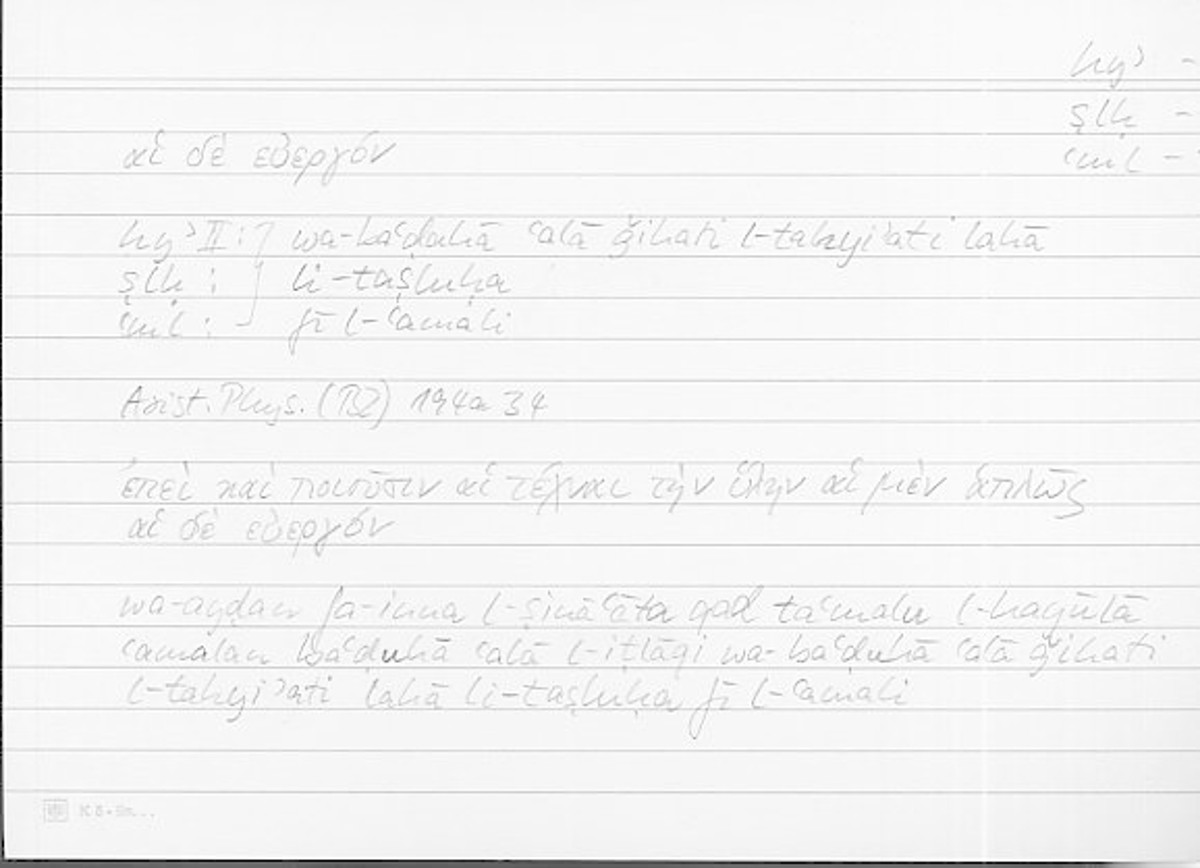 hyʾ -
ṣlḥ -
ʿml -
αἱ δὲ εὐεργόν
hyʾ II: wa-baʿḍuhā ʿalā ǧihati l-tahyiʾati lahā
ṣlḥ : li-taṣluḥa
ʿml : fī l-ʿamali
Arist. Phys. (B2) 194a 34
ἐπεὶ καὶ ποιοῦσιν αἱ τέχναι τὴν ὕλην αἱ μὲν ἁπλῶς
αἱ δὲ εὐεργόν
wa-ayḍan fa-inna l-ṣināʿāta qad taʿmalu l-hayūlā
ʿamalan baʿḍuhā ʿalā l-iṭlāqi wa-baʿḍuhā ʿalā ǧihati
l-tahyiʾati lahā li-taṣluḥa fī l-ʿamali